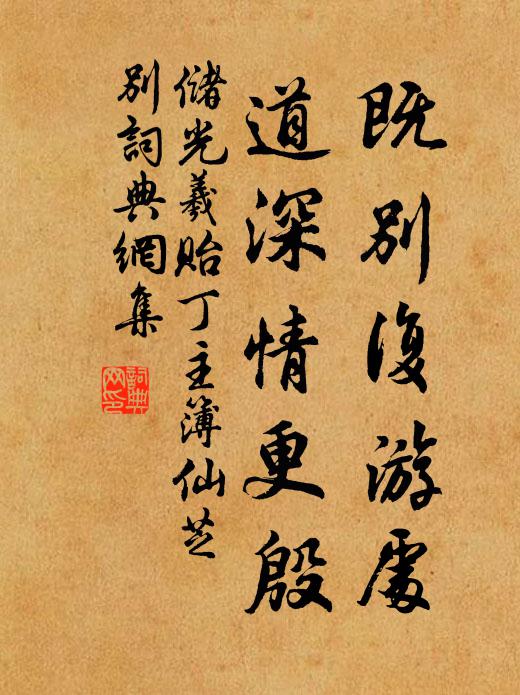 既别復游處
道深情更殷
儲光羲貽丁主簿仙芝
别詞典網集
詞典网印